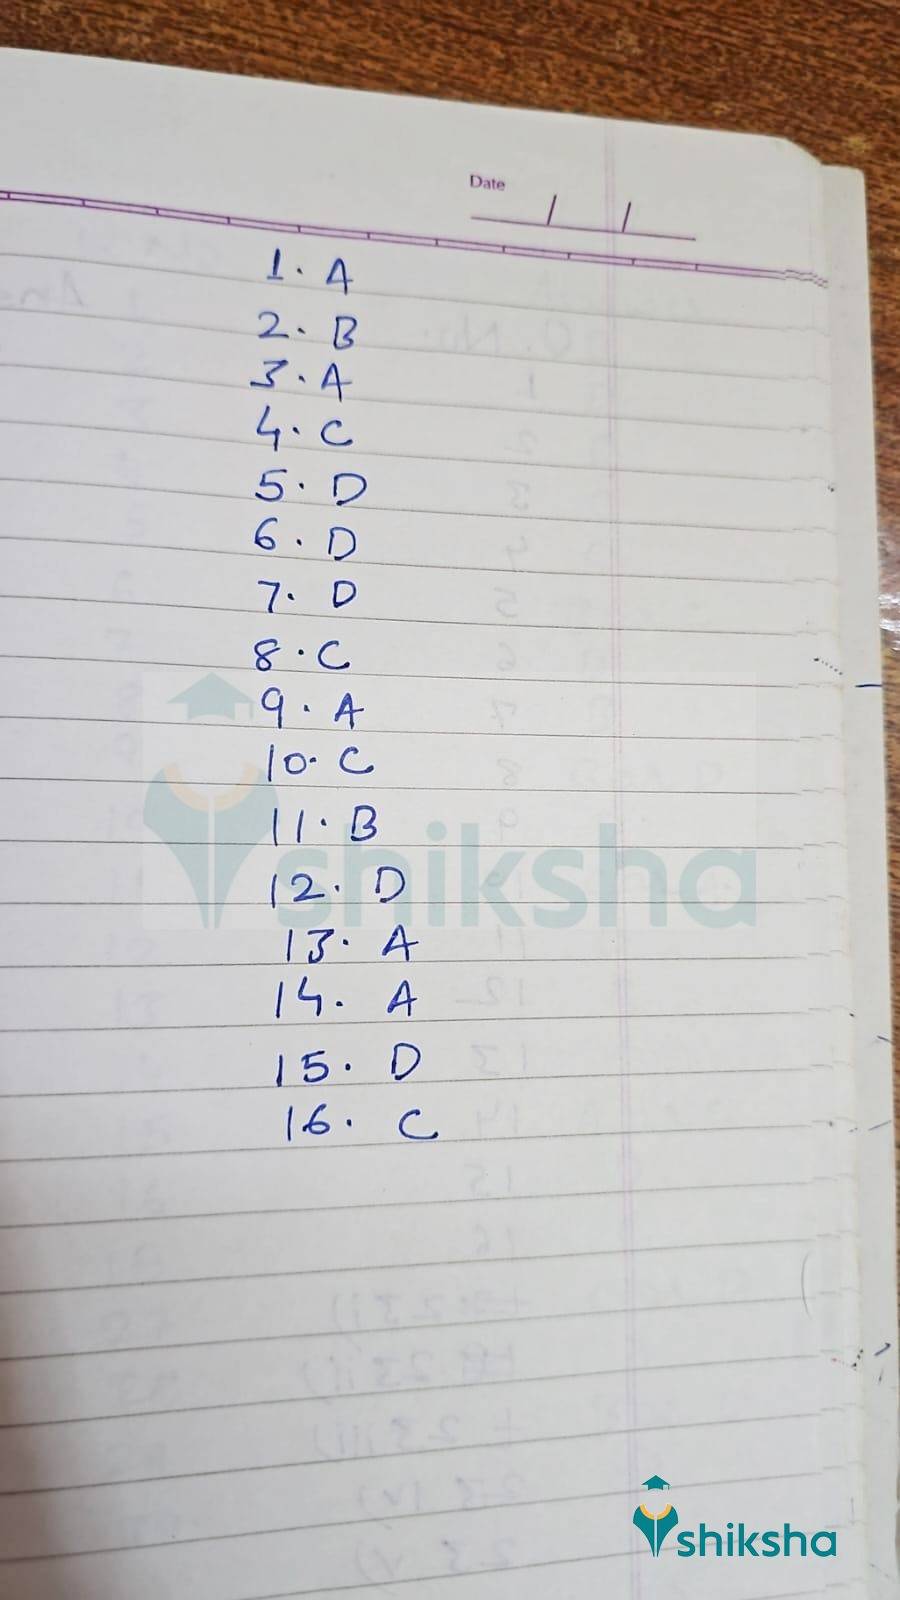 Date
1. A
2. B
3. A
4. C
5. D
6. D
7. D
8. C
9. A
10. C
11. B
12. D
13. A
14. A
15. D
16. C
shiksha
shiksha